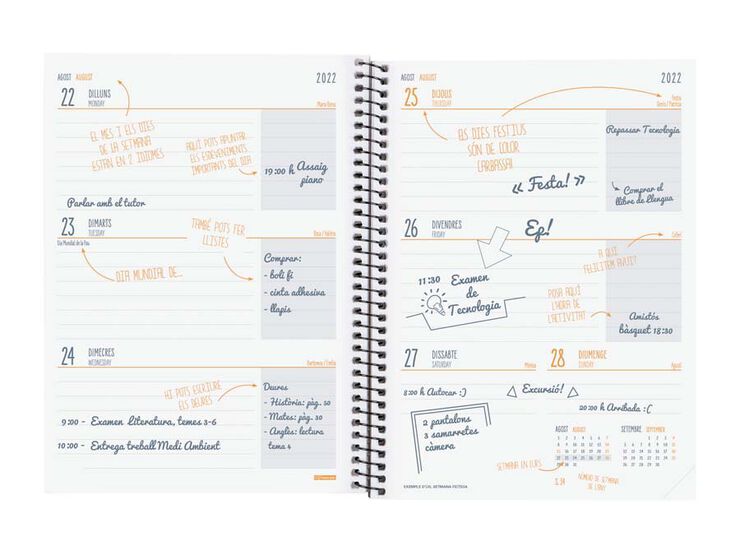 AGOST AUGUST
2022
22 DILLUNS
MONDAY
EL MES I ELS DIES
DE LA SETMANA
ESTAN EN 2 IDIOMES
AQUÍ POTS APUNTAR
ELS ESDEVENIMENTS
IMPORTANTS DEL DIA
19:00 h Assaig
piano
Parlar amb el tutor
23 DIMARTS
TUESDAY
Dia Mundial de la Pau
DIA MUNDIAL DE...
TAMBÉ POTS FER
LLISTES
Comprar:
- boli fi
- cinta adhesiva
- llapis
24 DIMECRES
WEDNESDAY
HI POTS ESCRIURE
ELS DEURES
Deures
- Història: pàg. 50
- Mates: pàg. 30
- Anglès: lectura
tema 4
9:00 - Examen Literatura, temes 3-6
10:00 - Entrega treball Medi Ambient
AGOST AUGUST
2022
25 DIJOUS
THURSDAY
ELS DIES FESTIUS
SÓN DE COLOR
CARBASSA!
« Festa! »
Repassar Tecnologia
Comprar el
llibre de Llengua
26 DIVENDRES
FRIDAY
Ep!
11:30 Examen
de
Tecnologia
A QUI
FELICITEM AVUI?
POSA AQUÍ
L'HORA DE
L'ACTIVITAT
Amistós
bàsquet 18:30
27 DISSABTE
SATURDAY
Mònica
8:00 h Autocar :)
Excursió!
2 pantalons
3 samarretes
càmera
28 DIUMENGE
SUNDAY
Agustí
20:00 h Arribada :(
AGOST AUGUST
SETEMBRE SEPTEMBER
SETMANA EN CURS
S. 34
NÚMERO DE SETMANA
DE L'ANY
EXEMPLE D'ÚS, SETMANA FICTÍCIA